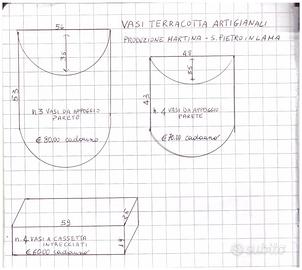 VASI TERRACOTTA ARTIGIANALI
PRODUZIONE MARTINA - S. PIETRO IN LAMA
56
35
53
n.3 VASI DA APPOGGIO
PARETE
€ 80,00 cadauno
48
43
n. 4 VASI DA APPOGGIO
PARETE
€ 70,00 cadauno
59
n. 4 VASI A CASSETTA
INTRECCIATI
€ 60,00 cadauno
19
subito